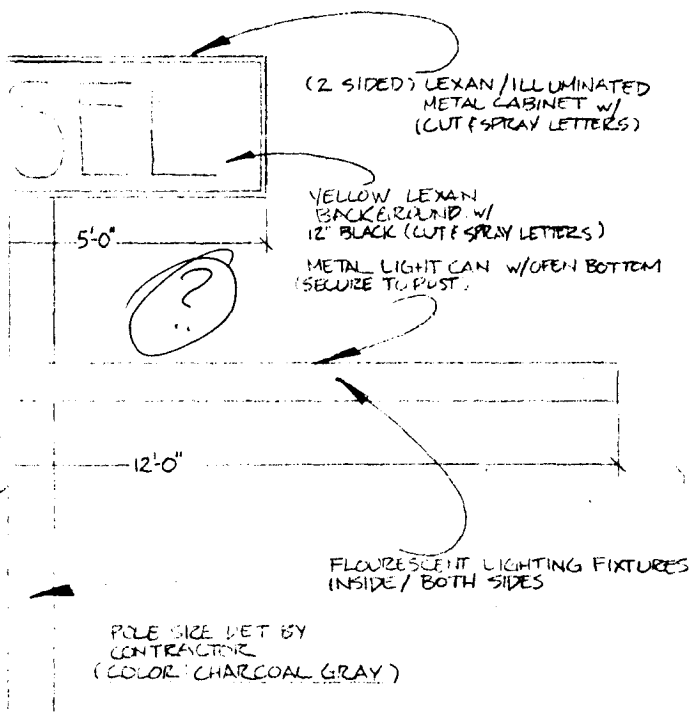 (2 SIDED) LEXAN/ILLUMINATED
METAL CABINET W/
(CUT & SPRAY LETTERS)
SEL
YELLOW LEXAN
BACKGROUND W/
12" BLACK (CUT & SPRAY LETTERS)
5'-0"
METAL LIGHT CAN W/OPEN BOTTOM
(SECURE TO POST)
?
12'-0"
FLOURESCENT LIGHTING FIXTURES
INSIDE/BOTH SIDES
POLE SIZE DET BY
CONTRACTOR
(COLOR: CHARCOAL GRAY)